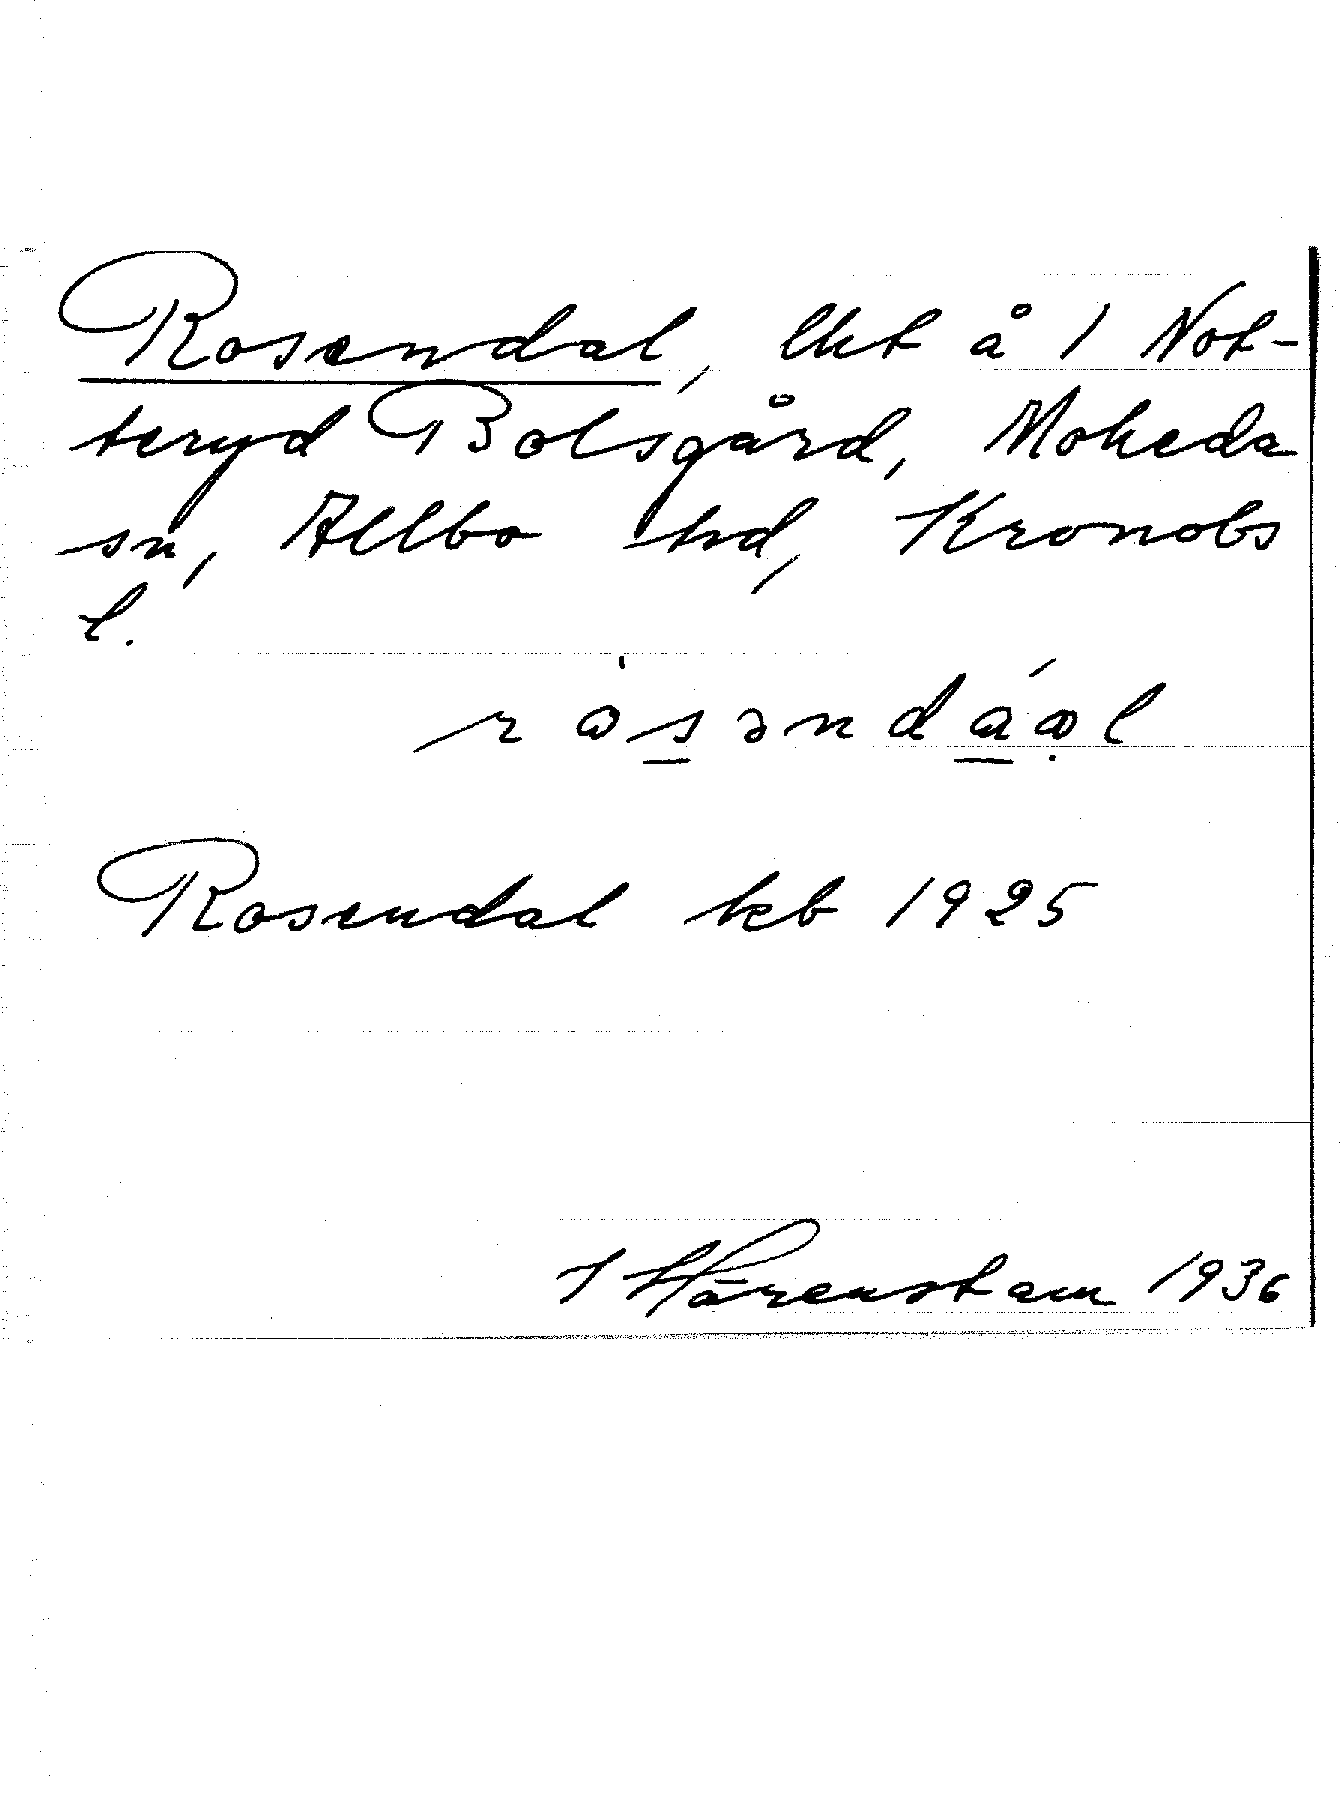 Rosendal, lht å 1 Not-
teryd Bolsgård, Moheda
sn, Allbo hd, Kronobs
l.
Rosendal kb 1925
I Hårenstam 1936